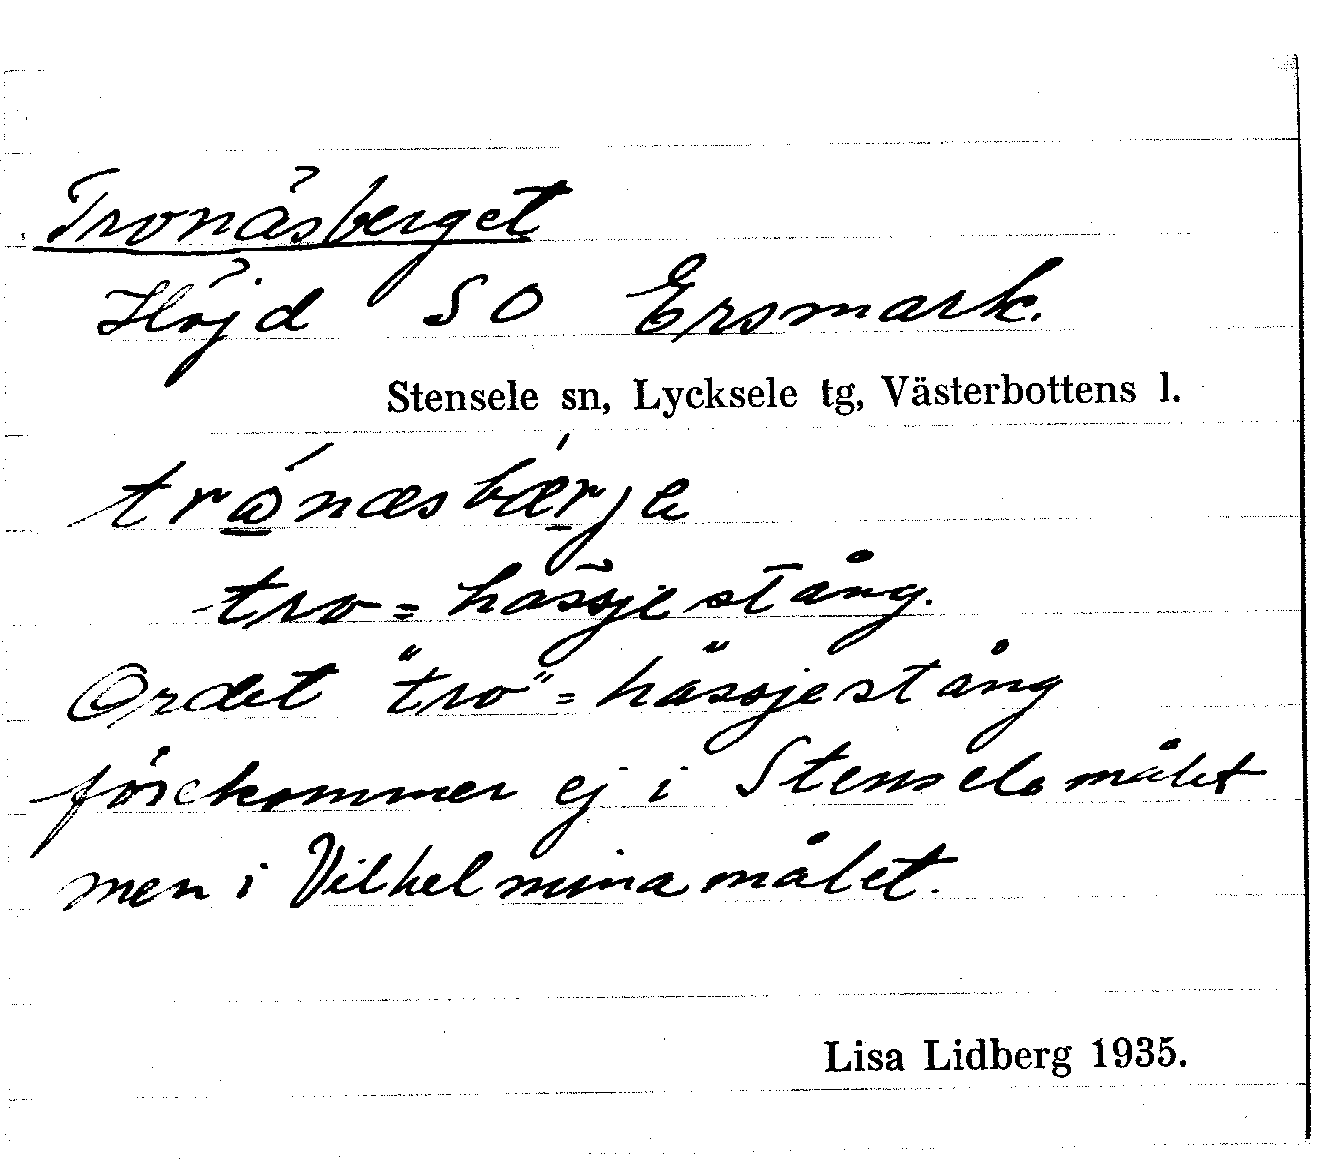 Tronäsberget
Höjd SO Ersmark.
Stensele sn, Lycksele tg, Västerbottens l.
trånæsbærje
tro = hässjestång.
Ordet "tro" = hässjestång
förekommer ej i Stenselemålet
men i Vilhelminamålet.
Lisa Lidberg 1935.